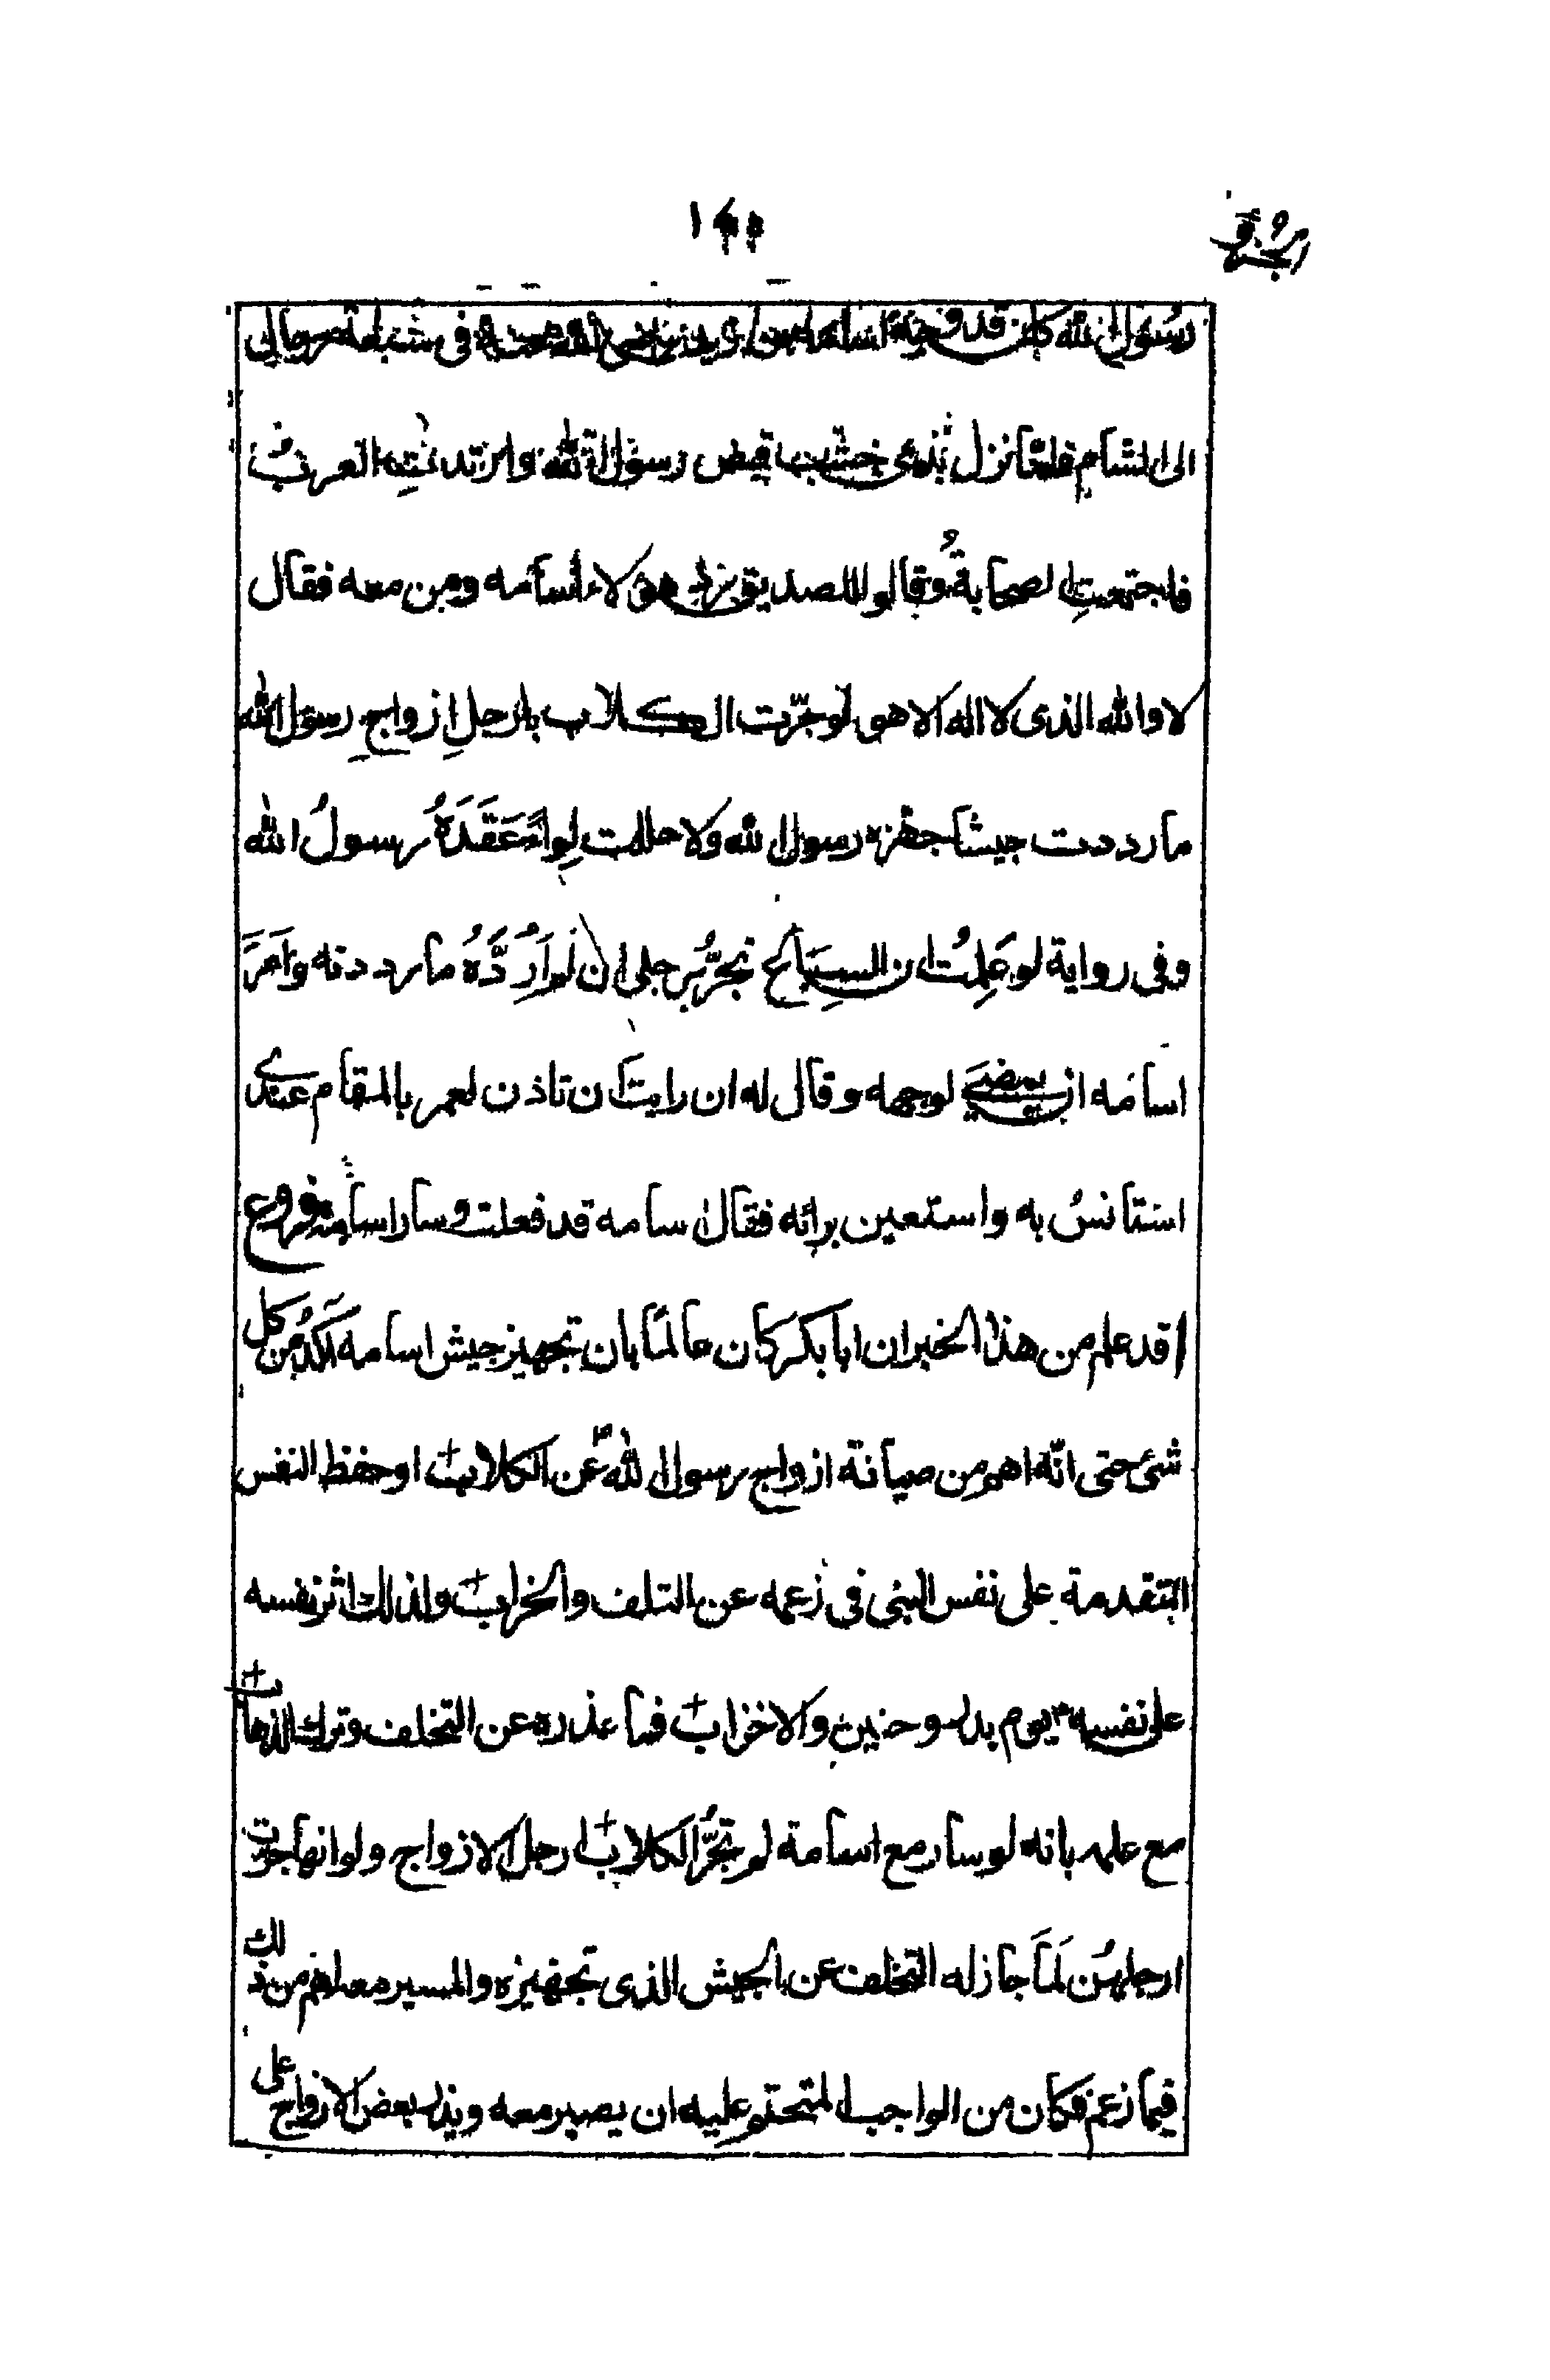 رسول الله كان قد وجه اسامة بن زيد رضى الله عنه فى سبعمائة رجال
الى الشام فلما نزل بذى خشب قبض رسول الله وارتدت العرب
فاجتمعت الصحابةُ وقالوا للصديق رد هؤلاء اسامه ومن معه فقال
لا والله الذى لا اله الا هو لو جرّت الكلاب بارجلِ ازواجِ رسول الله
ما رددت جيشا جهزه رسول الله ولا حللت لِواءً عَقَدَهُ رسولُ الله
وفى رواية لو عَلِمْتُ ان السباع تجرُّ برجلى ان لم اَرُدَّهُ ما رددته واَمَرَ
اسامه ان يمضى لوجهه وقال له ان رايت ان تاذن لعمر بالمقام عندى
استانسُ به واستعين برائه فقال اسامه قد فعلت وسار اسامة
قد علم من هذا الخبر ان ابا بكر كان عالمًا بان تجهيز جيش اسامه آكدُ من كل
شئ حتى انّه اهم من صيانة ازواج رسول الله عن الكلاب او حفظ النفس
المتقدمة على نفس النبى فى زعمه عن التلف والخراب ولذلك اثر نفسه
على نفسه يوم بدر وحنين والاحزاب فما عذره عن التخلف وترك الذهاب
مع علمه بانه لو سار مع اسامة لم تجرُّ الكلاب ارجل الازواج ولو انها جرت
ارجلهن لَمَا جاز له التخلف عن الجيش الذى تجهيزه والمسير معه اهم من ذلك
فيما زعم فكان من الواجب المتحتم عليه ان يصير معه ويذر بعض الازواج على